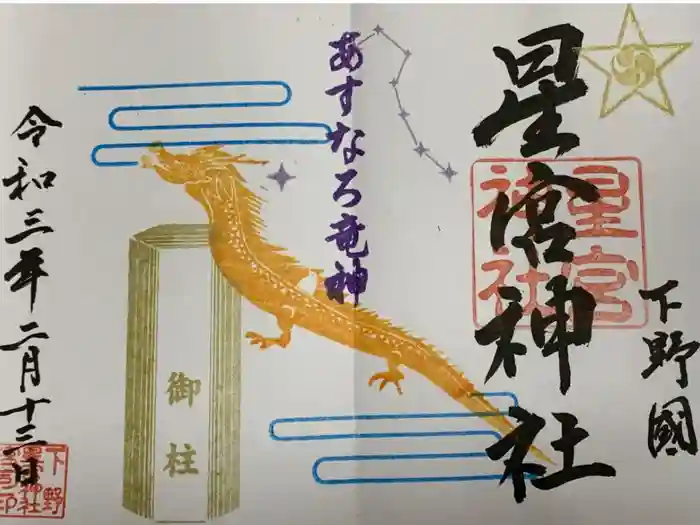 下野國
星宮神社
星宮
神社
あすなろ竜神
御柱
令和三年二月十三日
下野
星宮神社